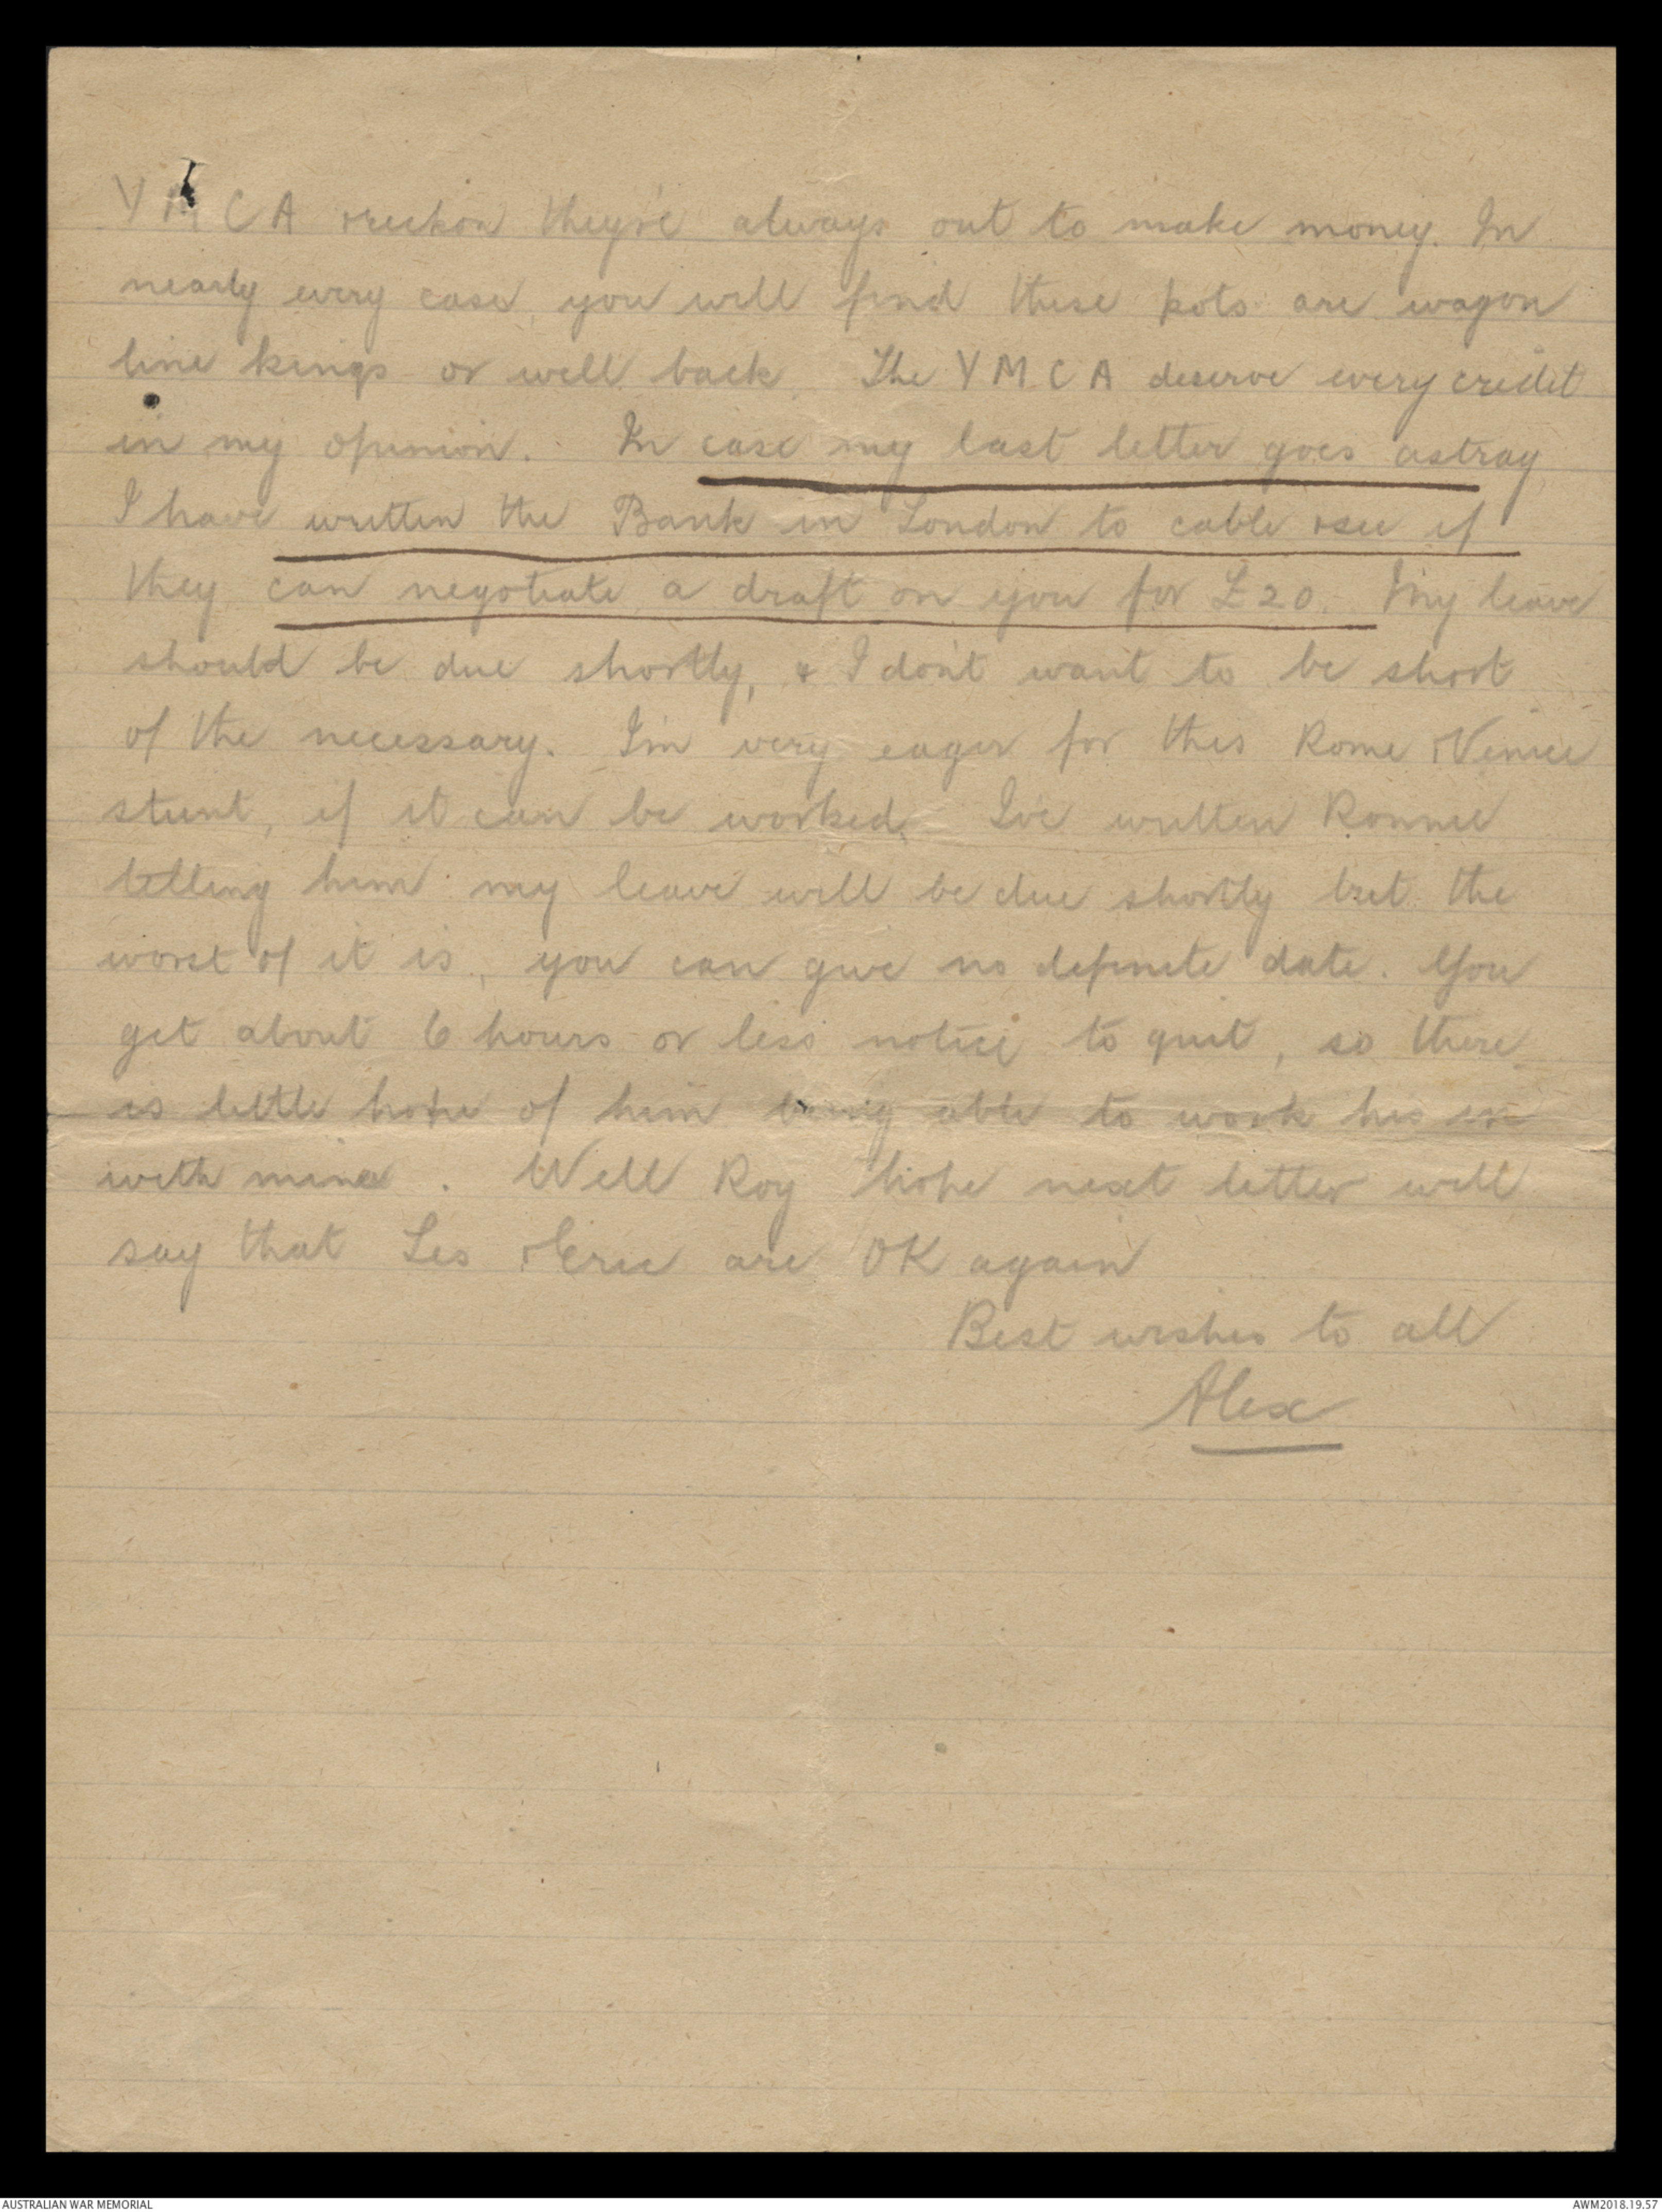 YMCA & reckon they're always out to make money. In
nearly every case you will find these pots are wagon
line kings or well back. The YMCA deserve every credit
in my opinion. In case my last letter goes astray
I have written the Bank in London to cable & see if
they can negotiate a draft on you for £20. My leave
should be due shortly, & I don't want to be short
of the necessary. I'm very eager for this Rome & Venice
stunt, if it can be worked. I've written Ronnie
telling him my leave will be due shortly but the
worst of it is, you can give no definite date. You
get about 6 hours or less notice to quit, so there
is little hope of him being able to work his in
with mine. Well Roy hope next letter will
say that Les & Eric are OK again
Best wishes to all
Alex
AUSTRALIAN WAR MEMORIAL
AWM2018.19.57